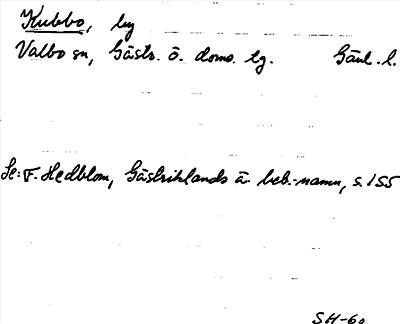 Kubbo, by
Valbo sn, Gästr. ö. doms. lg. Gävl. l.
Se: F. Hedblom, Gästriklands ä. beb.-namn, s. 155
SH-60